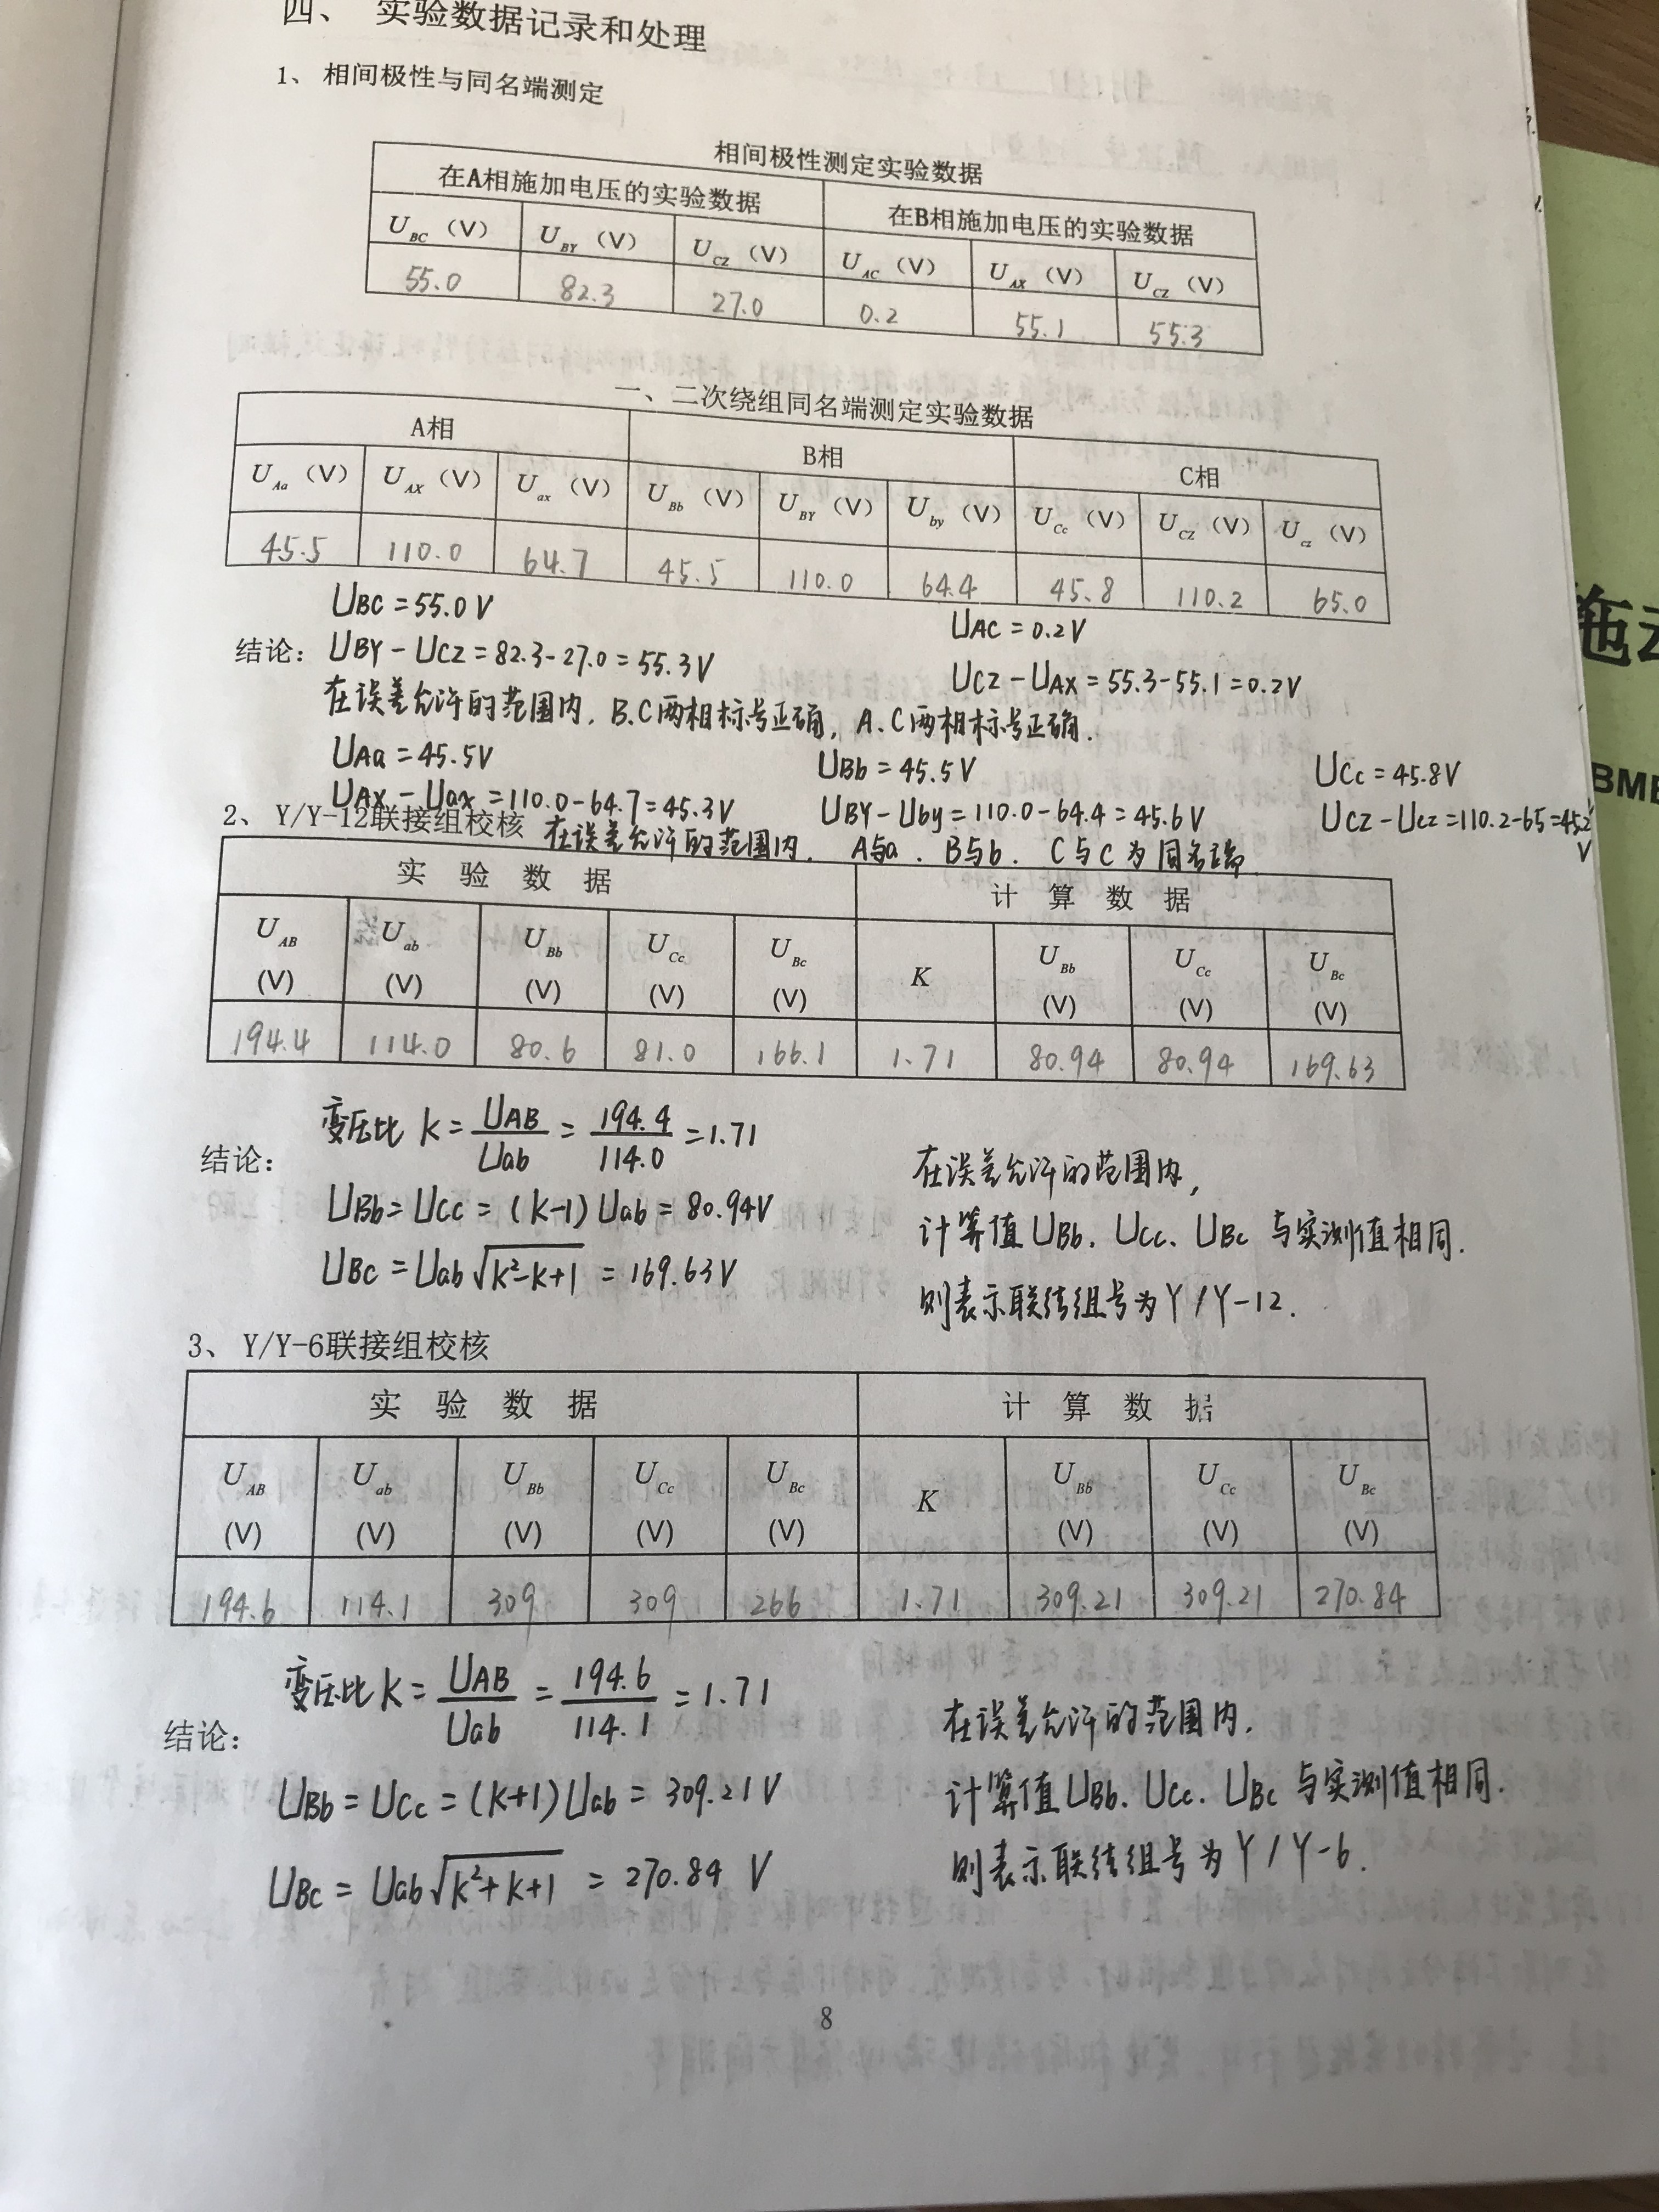 四、 实验数据记录和处理
1、 相间极性与同名端测定
相间极性测定实验数据
在A相施加电压的实验数据 在B相施加电压的实验数据
U_BC (V) U_BY (V) U_CZ (V) U_AC (V) U_AX (V) U_CZ (V)
55.0 82.3 27.0 0.2 55.1 55.3
一、二次绕组同名端测定实验数据
A相 B相 C相
U_Aa (V) U_AX (V) U_ax (V) U_Bb (V) U_BY (V) U_by (V) U_Cc (V) U_CZ (V) U_cz (V)
45.5 110.0 64.7 45.5 110.0 64.4 45.8 110.2 65.0
UBC = 55.0V UAC = 0.2V
结论： UBY - UCZ = 82.3-27.0 = 55.3V UCZ - UAX = 55.3-55.1 = 0.2V
在误差允许的范围内, B.C两相标号正确, A.C两相标号正确.
UAa = 45.5V UBb = 45.5V UCc = 45.8V
UAX - Uax = 110.0-64.7 = 45.3V UBY - Uby = 110.0-64.4 = 45.6V UCZ - Ucz = 110.2-65 = 45.2V
2、 Y/Y-12联接组校核 在误差允许的范围内, A与a. B与b. C与c为同名端
实 验 数 据 计 算 数 据
U_AB (V) U_ab (V) U_Bb (V) U_Cc (V) U_Bc (V) K U_Bb (V) U_Cc (V) U_Bc (V)
194.4 114.0 80.6 81.0 166.1 1.71 80.94 80.94 169.63
结论： 变压比 K = UAB/Uab = 194.4/114.0 = 1.71
UBb = UCc = (K-1) Uab = 80.94V
UBc = Uab√(K²-K+1) = 169.63V
在误差允许的范围内,
计算值UBb. UCc、UBc 与实测值相同.
则表示联结组号为Y/Y-12.
3、 Y/Y-6联接组校核
实 验 数 据 计 算 数 据
U_AB (V) U_ab (V) U_Bb (V) U_Cc (V) U_Bc (V) K U_Bb (V) U_Cc (V) U_Bc (V)
194.6 114.1 309 309 266 1.71 309.21 309.21 270.84
结论： 变压比 K = UAB/Uab = 194.6/114.1 = 1.71
UBb = UCc = (K+1) Uab = 309.21V
UBc = Uab√(K²+K+1) = 270.84 V
在误差允许的范围内,
计算值UBb. UCc. UBc 与实测值相同.
则表示联结组号为Y/Y-6.
8